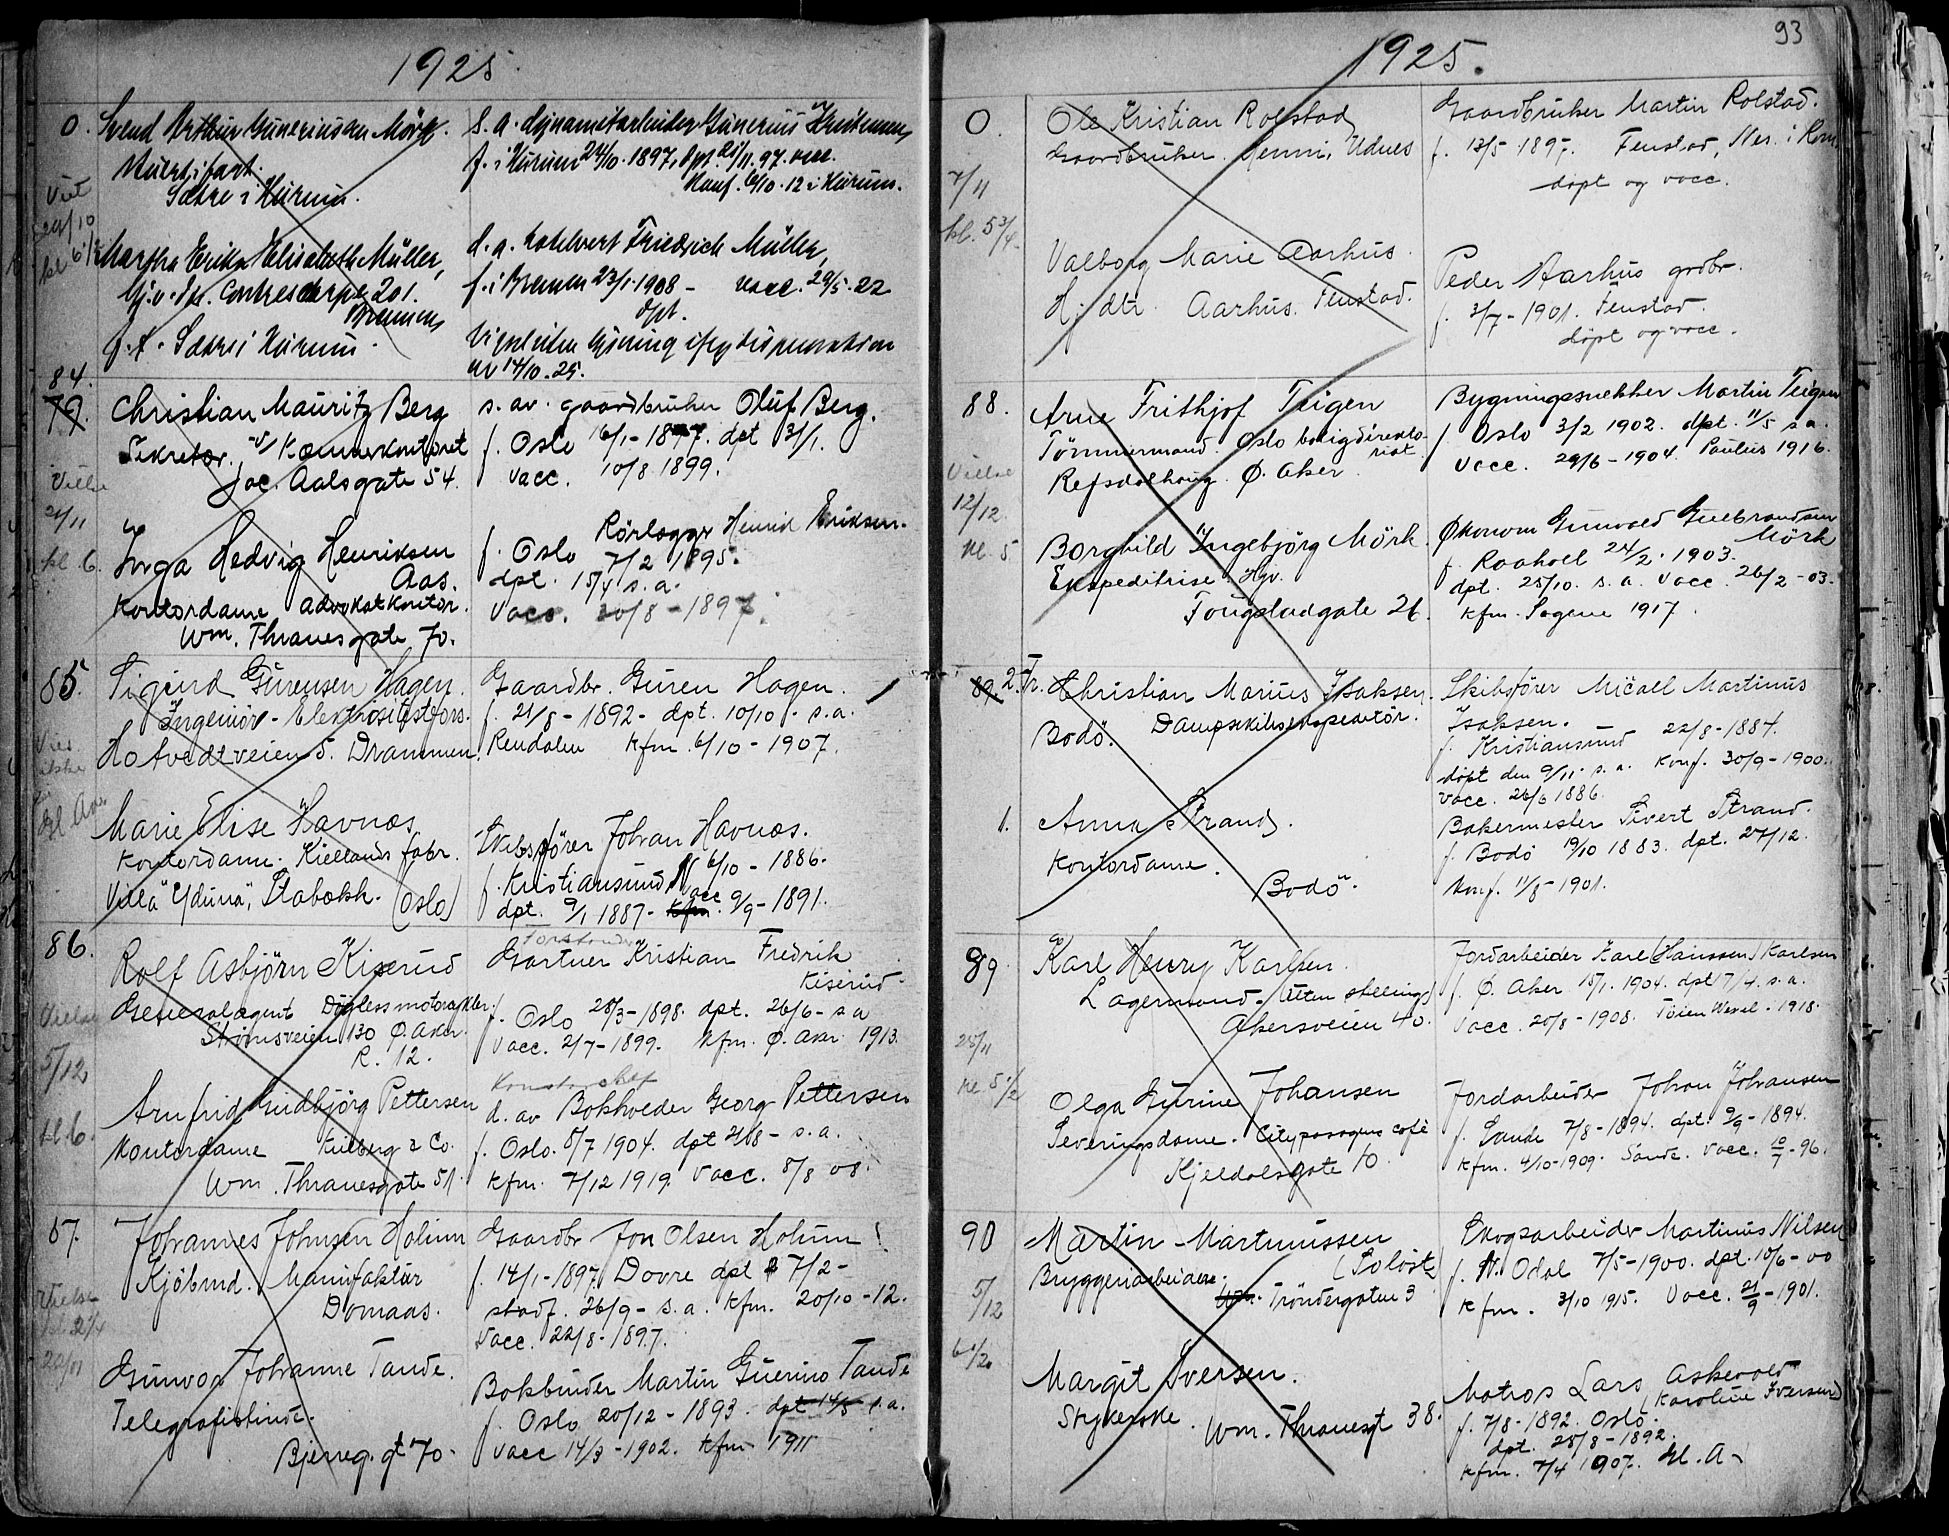 1925.
0. Svend Arthur Guneriussen Mörk. S. a. dynamitarbeider Gunerius Kristensen,
f. i Hurum 24/10. 1897, dpt. 21/11. 97. vacc.
Sætre i Hurum. Konf. 6/10. 12 i Hurum.
Viet
29/10
kl 6 1/2
Martha Erika Elisabeth Müller, d. a. Friedrich Müller,
Contrescarpe 201. f. i Bremen 23/1. 1908 - vacc. 29/5 22
Bremen dpt.
p. t. Sætre i Hurum. lysning iflg dispensation
av 14/10. 25.
84.
79. Christian Mauritz Berg s. av. gaardbruker Oluf Berg.
Sekretær v/ Kæmnerkontoret f. Oslo 16/1 - 1897. dpt 31/1.
Jac. Aalsgate 54. vacc. 10/8 1899.
Vielse
21/11
kl 6.
Inga Hedvig Henriksen Rörlegger Henrik Eriksen.
Aas. f. Oslo 7/2 1895.
Kontordame Advokatkontor. dpt. 15/4 s. a.
Wm. Thranesgate 70. Vacc. 20/8 - 1897.
85. Sigurd Gurensen Hagen. Gaardbr. Guren Hagen.
Ingeniør - Elektrositetsfors. f. 21/8 - 1892 - dpt. 10/10 - s. a.
Hotvedtveien 5. Drammen. Rendalen kfm. 6/10 - 1907.
Marie Elise Havnæs Skibsfører Johan Havnæs.
Kontordame. Kiellands fabr. f. Kristiansund N 6/10 - 1886.
Villa Yduna, Stabekk. (Oslo) dpt. 9/1 1887 - kfm. vacc 9/9 - 1891.
86. Rolf Asbjörn Kiserud Gartner Kristian Fredrik
Kiserud.
Generalagent Douglass motorcykler. f. Oslo 28/3 - 1898. dpt. 26/6 - s a
Strømsveien 130 Ø. Aker. vacc. 2/7 - 1899. kfm. Ø. Aker 1913.
R. 12.
Vielse
5/12
kl 6.
Kontorchef
Arnfrid Gudbjörg Pettersen d. av Bokholder Georg Pettersen
Kontordame Kulberg & Co. f. Oslo. 5/7 1904. dpt 21/8 - s. a.
Wm. Thranesgate 51. kfm. 7/12 1919. vacc. 8/8 08.
87. Johannes Johnsen Holum Gaardbr Jon Olsen Holum
Kjöbmd. Manufaktur f. 14/1 - 1897. Dovre dpt 7/2 -
Domaas. stadf. 26/9 - s. a. kfm. 20/10 - 12.
vacc. 22/8 - 1897.
Gunvor Johanne Tande. Bokbinder Martin Guerino Tande
Telegrafistinde. f. Oslo 20/12 - 1893. dpt 14/5 s. a.
Bjerreg. gt 70. vacc 14/3 - 1902. kfm. 1911
93
1925.
0. Ole Kristian Rolstad Gaardbruker Martin Rolstad.
Gaardbruker. Udnes f. 13/5 1897. Fenstad, Nes. i Rom.
døpt og vacc.
7/11
kl. 5 3/4
Valborg Marie Aarhus. Peder Aarhus grdbr.
Hj. dtr. Aarhus. Fenstad. f. 3/7 - 1901. Fenstad.
døpt og vacc.
88. Arne Frithjof Teigen Bygningssnekker Martin Teigen
Tømmermand. Oslo boligdirekto- f. Oslo 3/2 1902. dpt. 11/5 s a.
riat.
Refsdalhaug. Ø. Aker vacc. 29/6 - 1904. Paulus 1916.
Vielse
12/12
kl. 5
Borghild Ingebjörg Mörk. Økonom Gunvald Gulbrandsen
Mörk
Ekspeditrise. Hjv. f. Raaholt 24/2 - 1903.
Fougstadgate 26. dpt. 25/10. s. a. vacc. 26/2 - 03.
kfm. Sagene 1917.
89. 2. Tr. Christian Marius Isaksen. Skibsfører Micael Martinus
Bodö. Dampskibsekspeditör. Isaksen.
f. Kristiansund 22/8 - 1884.
døpt den 9/11 - s. a. Konf. 30/9 - 1900.
vacc. 26/6 1886.
1. Anna Strand. Bakermester Sivert Strand.
Kontordame. f. Bodö 19/10 1883. dpt. 27/12.
Bodö. Konf. 11/8 - 1901.
89 Karl Henry Karlsen. Jordarbeider Karl (Hanssen) Karlsen
Lagermand. (Uten stilling) f. Ø. Aker 15/1. 1904. dpt 17/4. s. a.
Akersveien 40. Vacc. 20/8 - 1908. Töien Wexel. 1918.
25/11
kl 5 1/2
Olga Gurine Johansen Jordarbeider Johan Johansen
Serveringsdame. Citypassagens café f. Sande 7/8 - 1894. dpt. 9/9 - 1894.
Kjeldalsgate 10. kfm. 4/10 - 1909. Sande. vacc. 10/7 - 96.
90 Martin Martinussen Skogsarbeider Martinus Nilsen
(Soløst) f. N. Odal 7/5 - 1900. dpt. 10/6 - 00
Bryggeriarbeider. Tröndergaten 3 kfm. 3/10 1915. Vacc. 21/9 - 1901.
5/12
6 1/2
Margit Iversen. Matros Lars Askevold
Strykerske. Wm. Thranesgt 38. (Karoline Iversen)
f. 7/8 - 1892. Oslo.
dpt. 28/8 - 1892.
kfm. 7/4 1907. Gl. A -